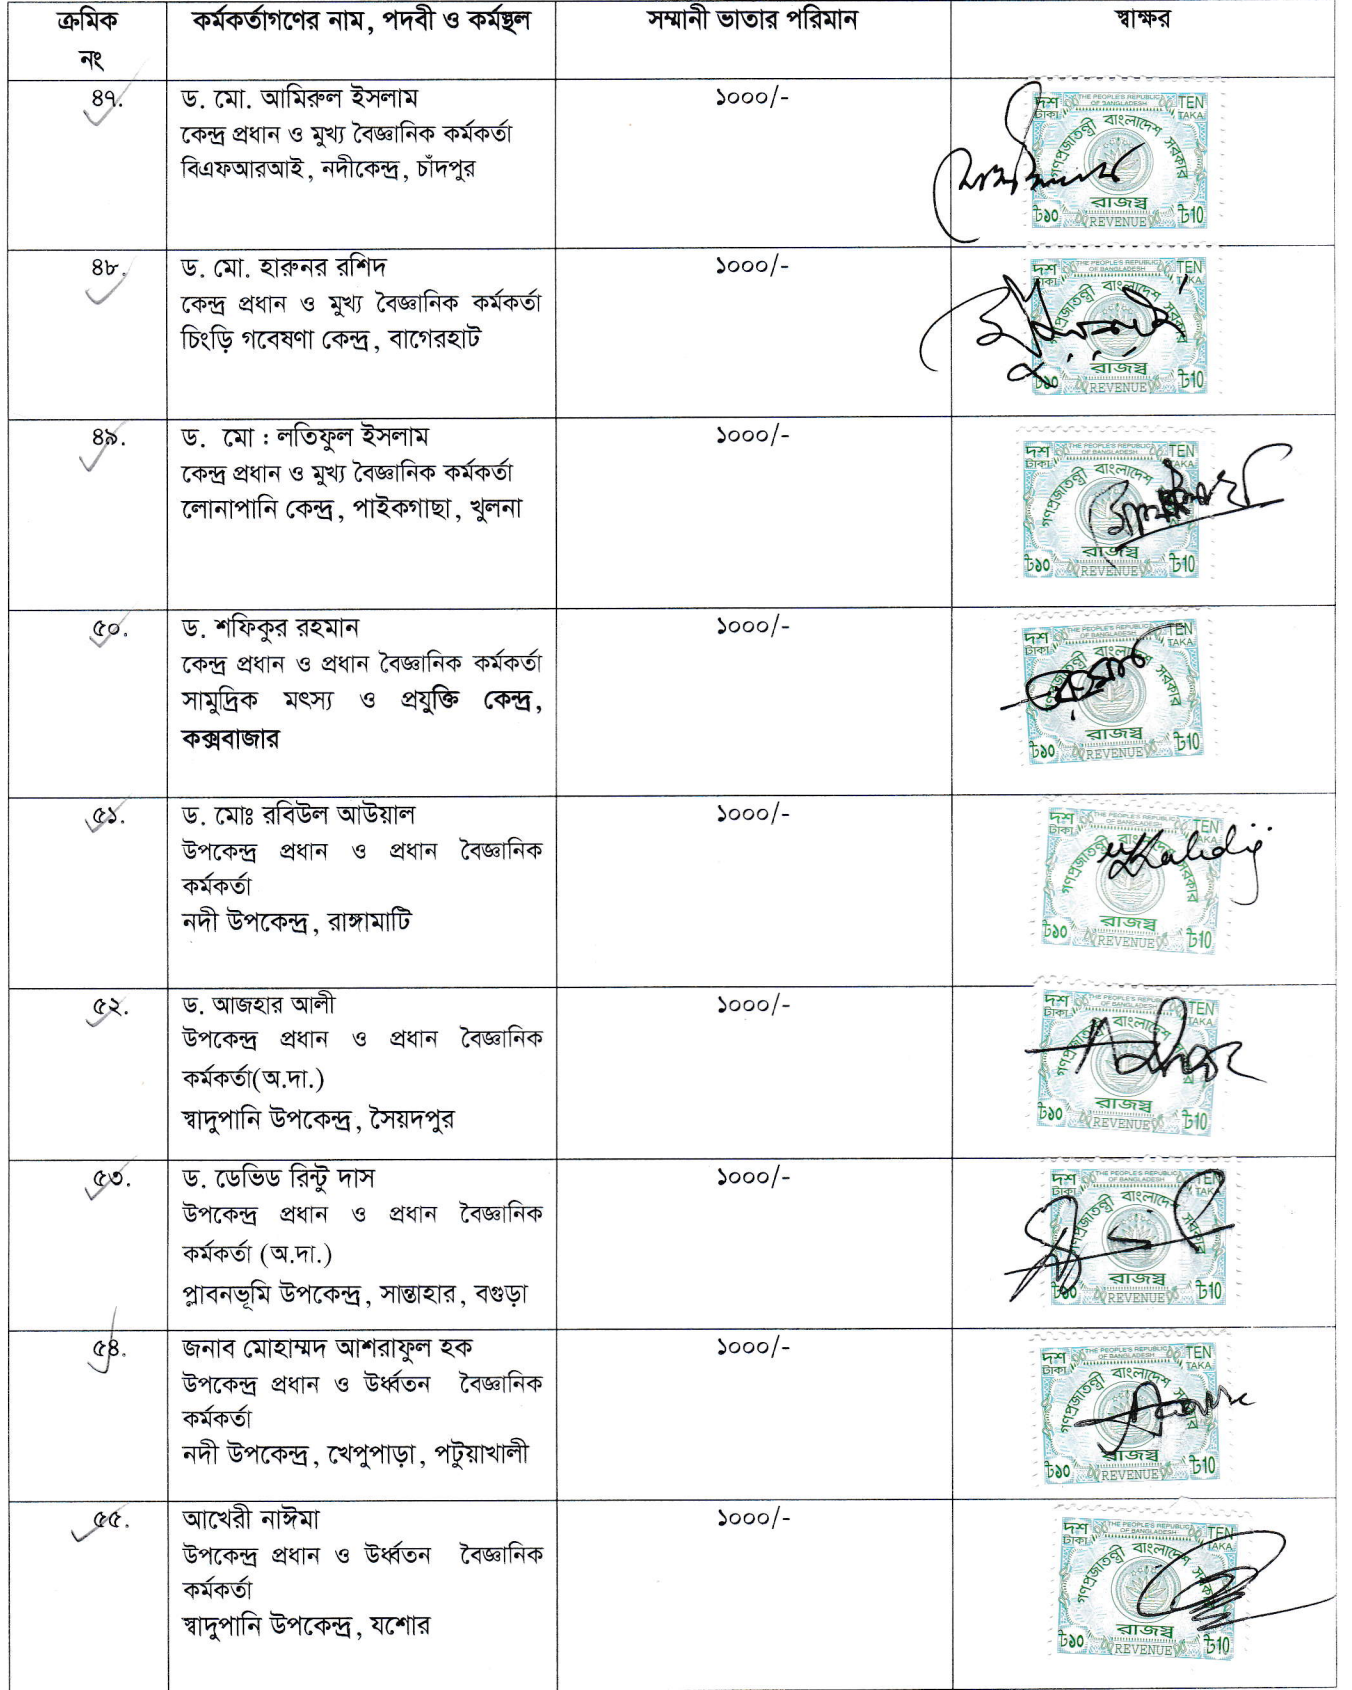 ক্রমিক নং কর্মকর্তাগণের নাম, পদবী ও কর্মস্থল সম্মানী ভাতার পরিমান স্বাক্ষর
৪৭. ড. মো. আমিরুল ইসলাম ১০০০/-
কেন্দ্র প্রধান ও মুখ্য বৈজ্ঞানিক কর্মকর্তা
বিএফআরআই, নদীকেন্দ্র, চাঁদপুর
দশ টাকা THE PEOPLE'S REPUBLIC OF BANGLADESH TEN TAKA
গণপ্রজাতন্ত্রী বাংলাদেশ সরকার
রাজস্ব
৳১০ REVENUE ৳10
৪৮. ড. মো. হারুনর রশিদ ১০০০/-
কেন্দ্র প্রধান ও মুখ্য বৈজ্ঞানিক কর্মকর্তা
চিংড়ি গবেষণা কেন্দ্র, বাগেরহাট
দশ টাকা THE PEOPLE'S REPUBLIC OF BANGLADESH TEN
বাংলাদেশ সরকার
রাজস্ব
৳১০ REVENUE ৳10
৪৯. ড. মো : লতিফুল ইসলাম ১০০০/-
কেন্দ্র প্রধান ও মুখ্য বৈজ্ঞানিক কর্মকর্তা
লোনাপানি কেন্দ্র, পাইকগাছা, খুলনা
দশ টাকা THE PEOPLE'S REPUBLIC OF BANGLADESH TEN TAKA
গণপ্রজাতন্ত্রী বাংলাদেশ
রাজস্ব
৳১০ REVENUE ৳10
৫০. ড. শফিকুর রহমান ১০০০/-
কেন্দ্র প্রধান ও প্রধান বৈজ্ঞানিক কর্মকর্তা
সামুদ্রিক মৎস্য ও প্রযুক্তি কেন্দ্র,
কক্সবাজার
দশ টাকা THE PEOPLE'S REPUBLIC OF BANGLADESH TEN TAKA
বাংলাদেশ সরকার
রাজস্ব
৳১০ REVENUE ৳10
৫১. ড. মোঃ রবিউল আউয়াল ১০০০/-
উপকেন্দ্র প্রধান ও প্রধান বৈজ্ঞানিক
কর্মকর্তা
নদী উপকেন্দ্র, রাঙ্গামাটি
দশ টাকা THE PEOPLE'S REPUBLIC OF BANGLADESH TEN TAKA
গণপ্রজাতন্ত্রী বাংলাদেশ সরকার
রাজস্ব
৳১০ REVENUE ৳10
৫২. ড. আজহার আলী ১০০০/-
উপকেন্দ্র প্রধান ও প্রধান বৈজ্ঞানিক
কর্মকর্তা(অ.দা.)
স্বাদুপানি উপকেন্দ্র, সৈয়দপুর
দশ টাকা THE PEOPLE'S REPUBLIC OF BANGLADESH TEN TAKA
গণপ্রজাতন্ত্রী বাংলাদেশ
Azhar
রাজস্ব
৳১০ REVENUE ৳10
৫৩. ড. ডেভিড রিন্টু দাস ১০০০/-
উপকেন্দ্র প্রধান ও প্রধান বৈজ্ঞানিক
কর্মকর্তা (অ.দা.)
প্লাবনভূমি উপকেন্দ্র, সান্তাহার, বগুড়া
দশ টাকা THE PEOPLE'S REPUBLIC OF BANGLADESH TEN TAKA
গণপ্রজাতন্ত্রী বাংলাদেশ সরকার
রাজস্ব
৳১০ REVENUE ৳10
৫৪. জনাব মোহাম্মদ আশরাফুল হক ১০০০/-
উপকেন্দ্র প্রধান ও উর্ধ্বতন বৈজ্ঞানিক
কর্মকর্তা
নদী উপকেন্দ্র, খেপুপাড়া, পটুয়াখালী
দশ টাকা THE PEOPLE'S REPUBLIC OF BANGLADESH TEN TAKA
গণপ্রজাতন্ত্রী বাংলাদেশ সরকার
রাজস্ব
৳১০ REVENUE ৳10
৫৫. আখেরী নাঈমা ১০০০/-
উপকেন্দ্র প্রধান ও উর্ধ্বতন বৈজ্ঞানিক
কর্মকর্তা
স্বাদুপানি উপকেন্দ্র, যশোর
দশ টাকা THE PEOPLE'S REPUBLIC OF BANGLADESH TEN TAKA
গণপ্রজাতন্ত্রী বাংলাদেশ সরকার
রাজস্ব
৳১০ REVENUE ৳10